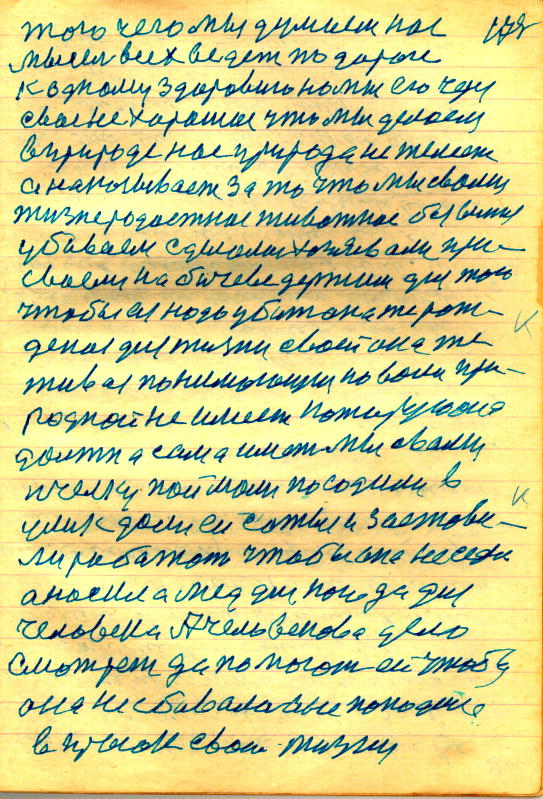 того чего мы думаем нас 178
мысел всех ведет по дороге
к одному здоровью но мы его чем
свае не хорошое что мы делаем
в природе нас природа не жалеет
а наказывает за то что мы своим
жизнерадостное животное
убиваем сделали хозяевами при-
своили на бичеве держим для того
чтобы ее надо убит она же рож-
деная для жизни своей она же
живая понимающия но воли при-
родной не имеет
должна сама имет мы свами
пчелку поймали посодили в
улик дали ей соты и застови-
ли работат чтобы она не себе
а носила мед для
человека А человекова дело
смотрет да помогат ей чтобы
она не сбивалася не
в свои жизни